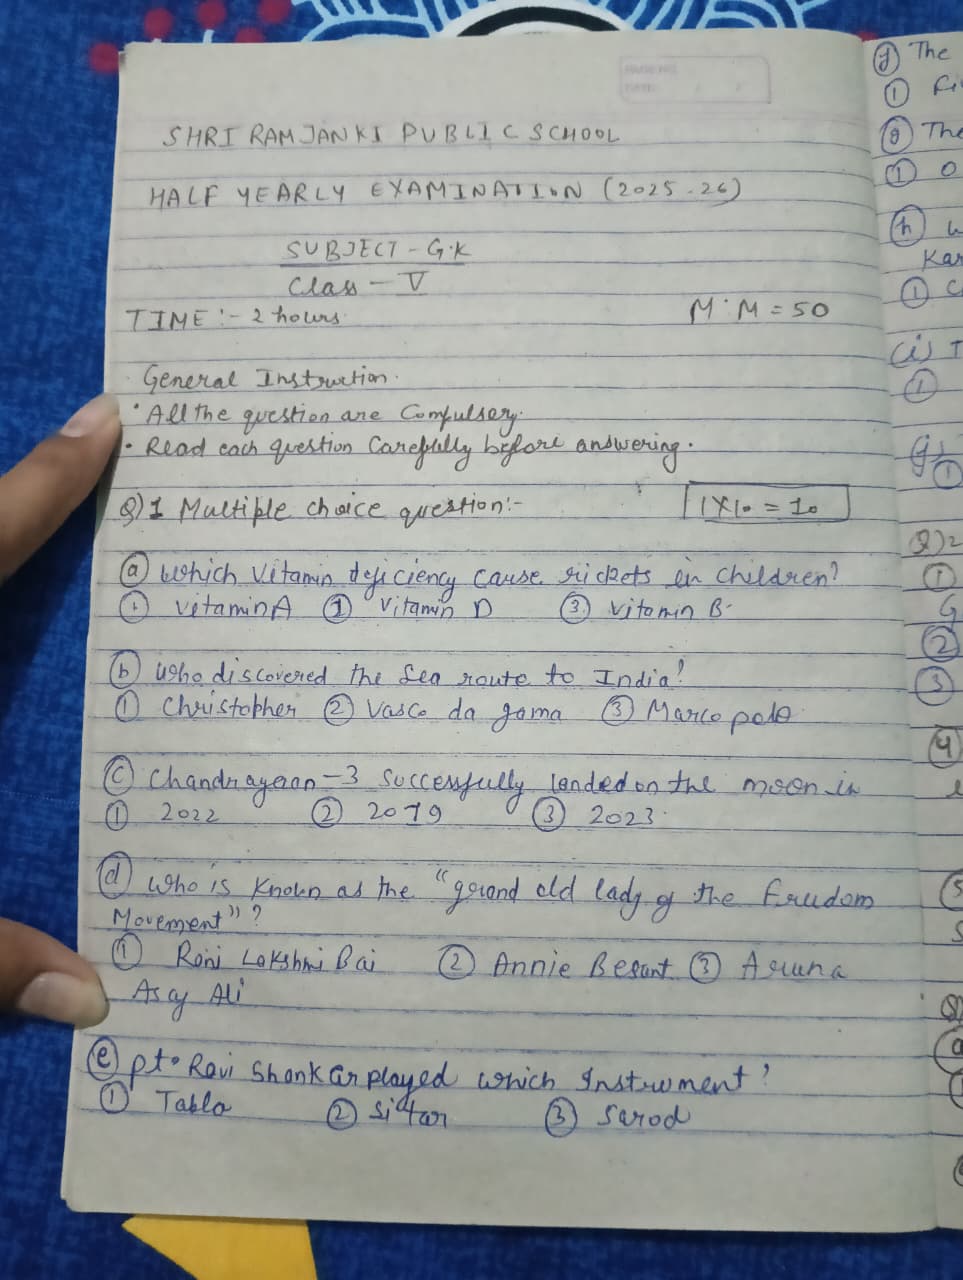 SHRI RAM JANKI PUBLIC SCHOOL
HALF YEARLY EXAMINATION (2025-26)
SUBJECT - G.K
Class - V
TIME :- 2 hours
M.M = 50
General Instruction.
• All the question are Compulsory.
• Read each question Carefully before answering.
Q)1 Multiple choice question:-
1X10 = 10
(a) Which Vitamin deficiency cause rickets in children?
① vitamin A ② Vitamin D ③ Vitamin B
(b) Who discovered the Sea route to India?
① Christopher ② Vasco da gama ③ Marco polo
(c) Chandrayaan-3 Successfully landed on the moon in
① 2022 ② 2019 ③ 2023
(d) Who is Known as the "grand old lady of the Freedom
Movement"?
① Rani Lakshmi Bai ② Annie Besant ③ Aruna
Asaf Ali
(e) pt. Ravi Shankar played which Instrument?
① Tabla ② Sitar ③ Sarod
The
①
(g) The
① O
(h)
Kar
① C
(i) T
①
①
Q)2
①
G
②
③
④